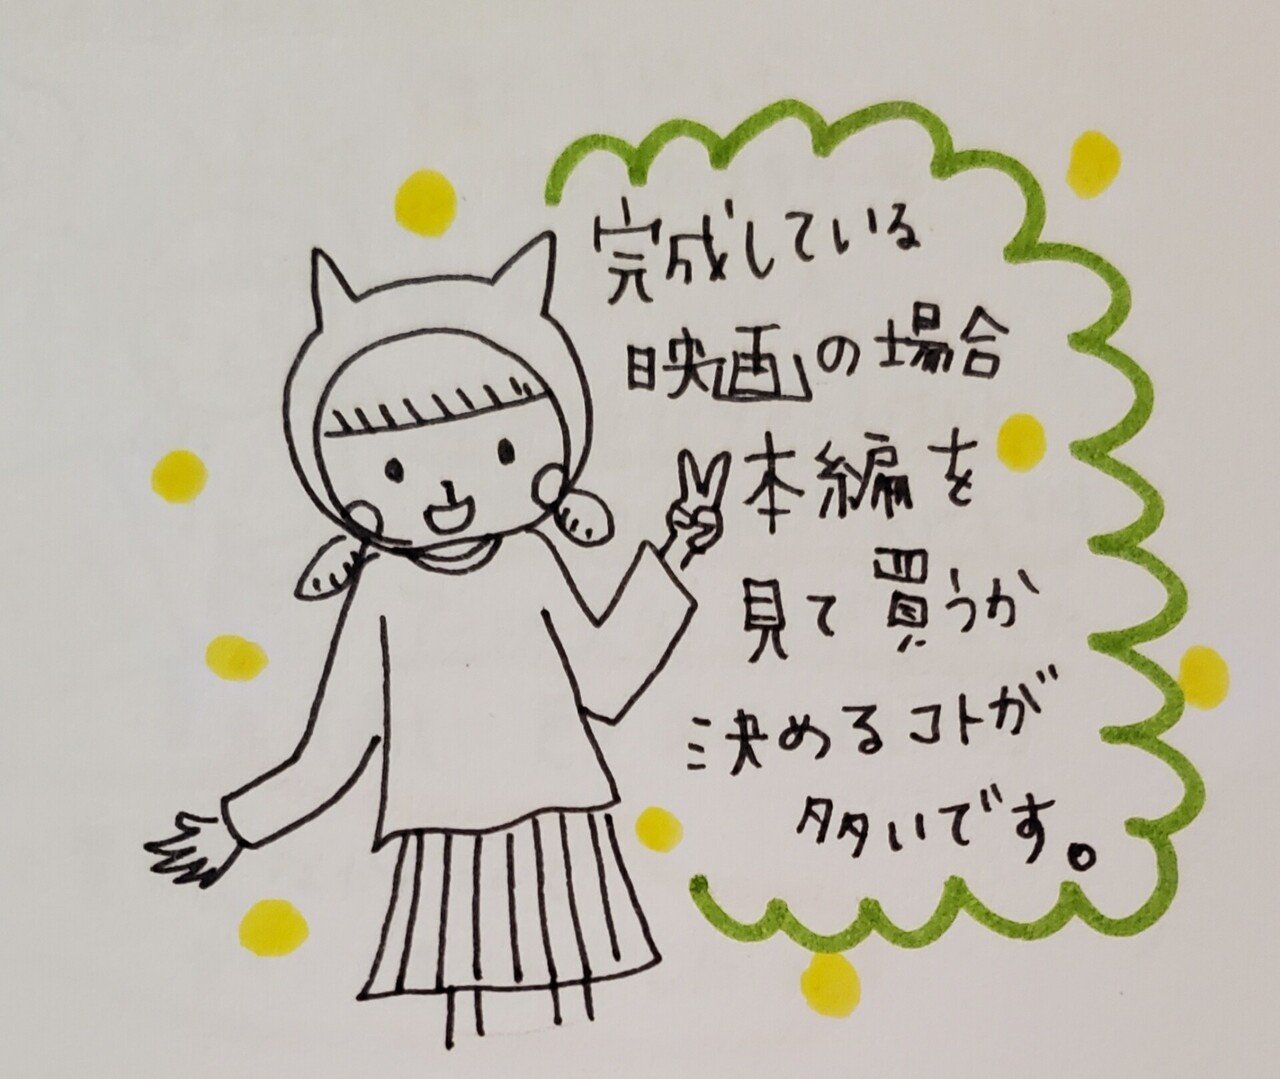 完成している
映画の場合
本編を
見て買うか
決めるコトが
多いです。